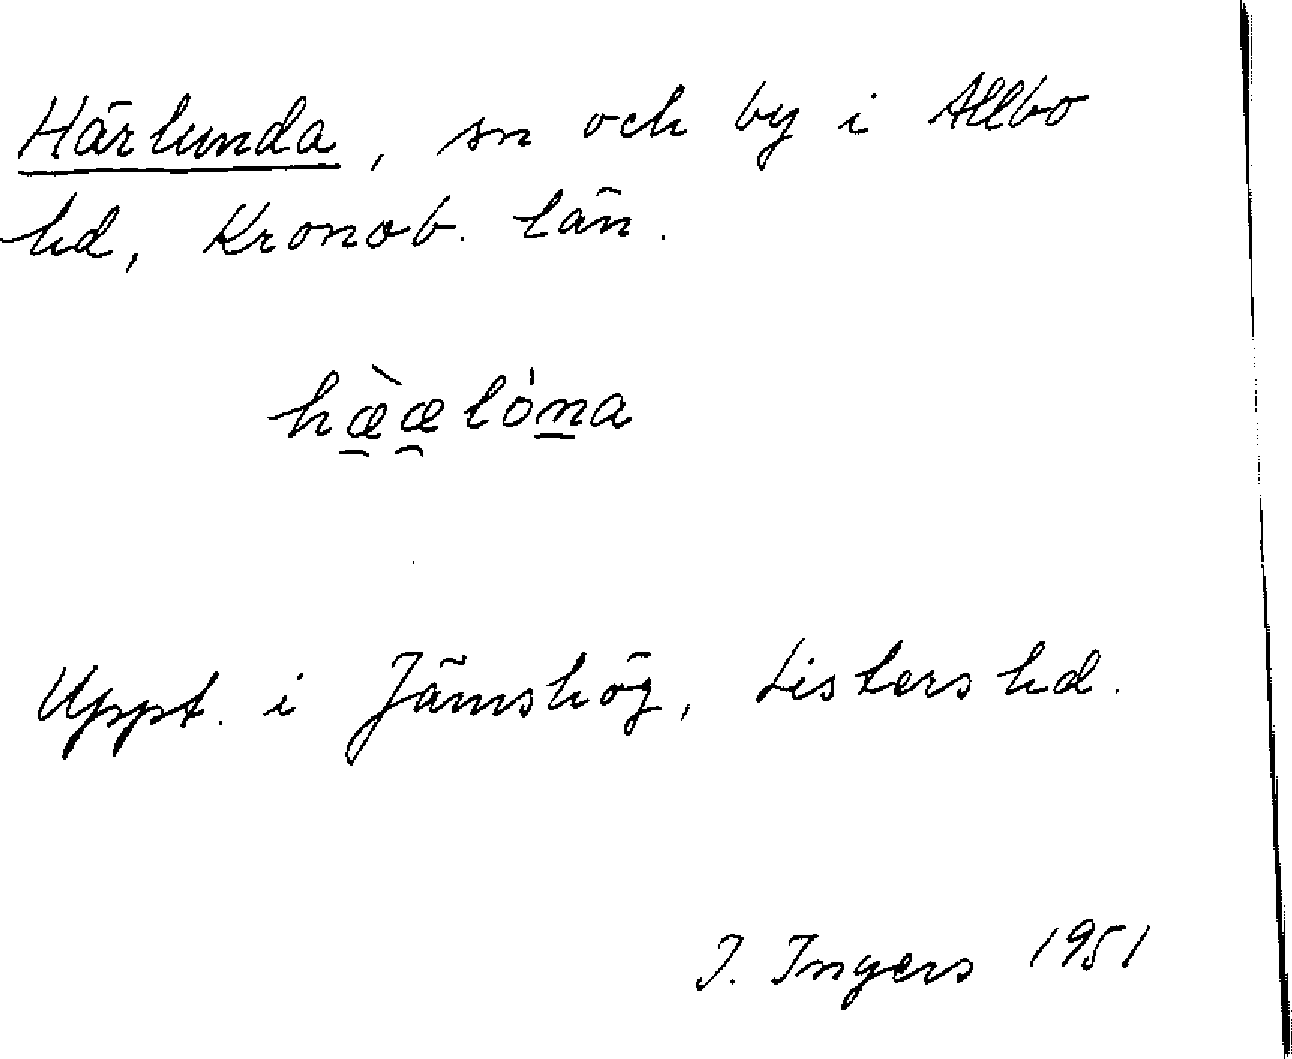 Härlunda, sn och by i Allbo
hd, Kronob. län.
hæ̱̀æ̯lȯṉa
Uppt. i Jämshög, Listers hd.
I. Ingers 1951